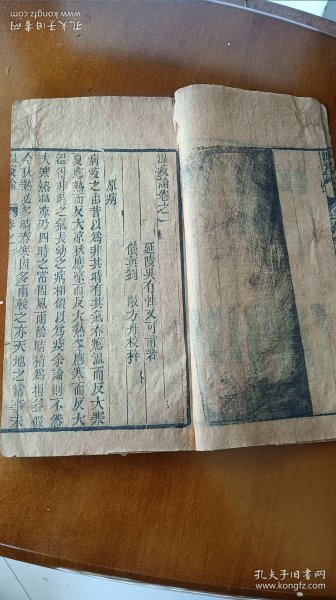 孔夫子旧书网
www.kongfz.com
溫疫論卷之一
延陵吳有性又可甫著
儀真劉敞方舟校梓
原病
病疫之由昔以為非其時有其氣春應溫而反大寒
夏應熱而反大凉秋應凉而反大熱冬應寒而反大
溫得非時之氣長幼之病相似以為疫余論則不然
夫寒熱溫凉乃四時之常因風雨陰晴稍為損益假
令秋熱必多晴春寒因多雨較之亦天地之常事未
溫疫論
卷之一
孔夫子旧书网